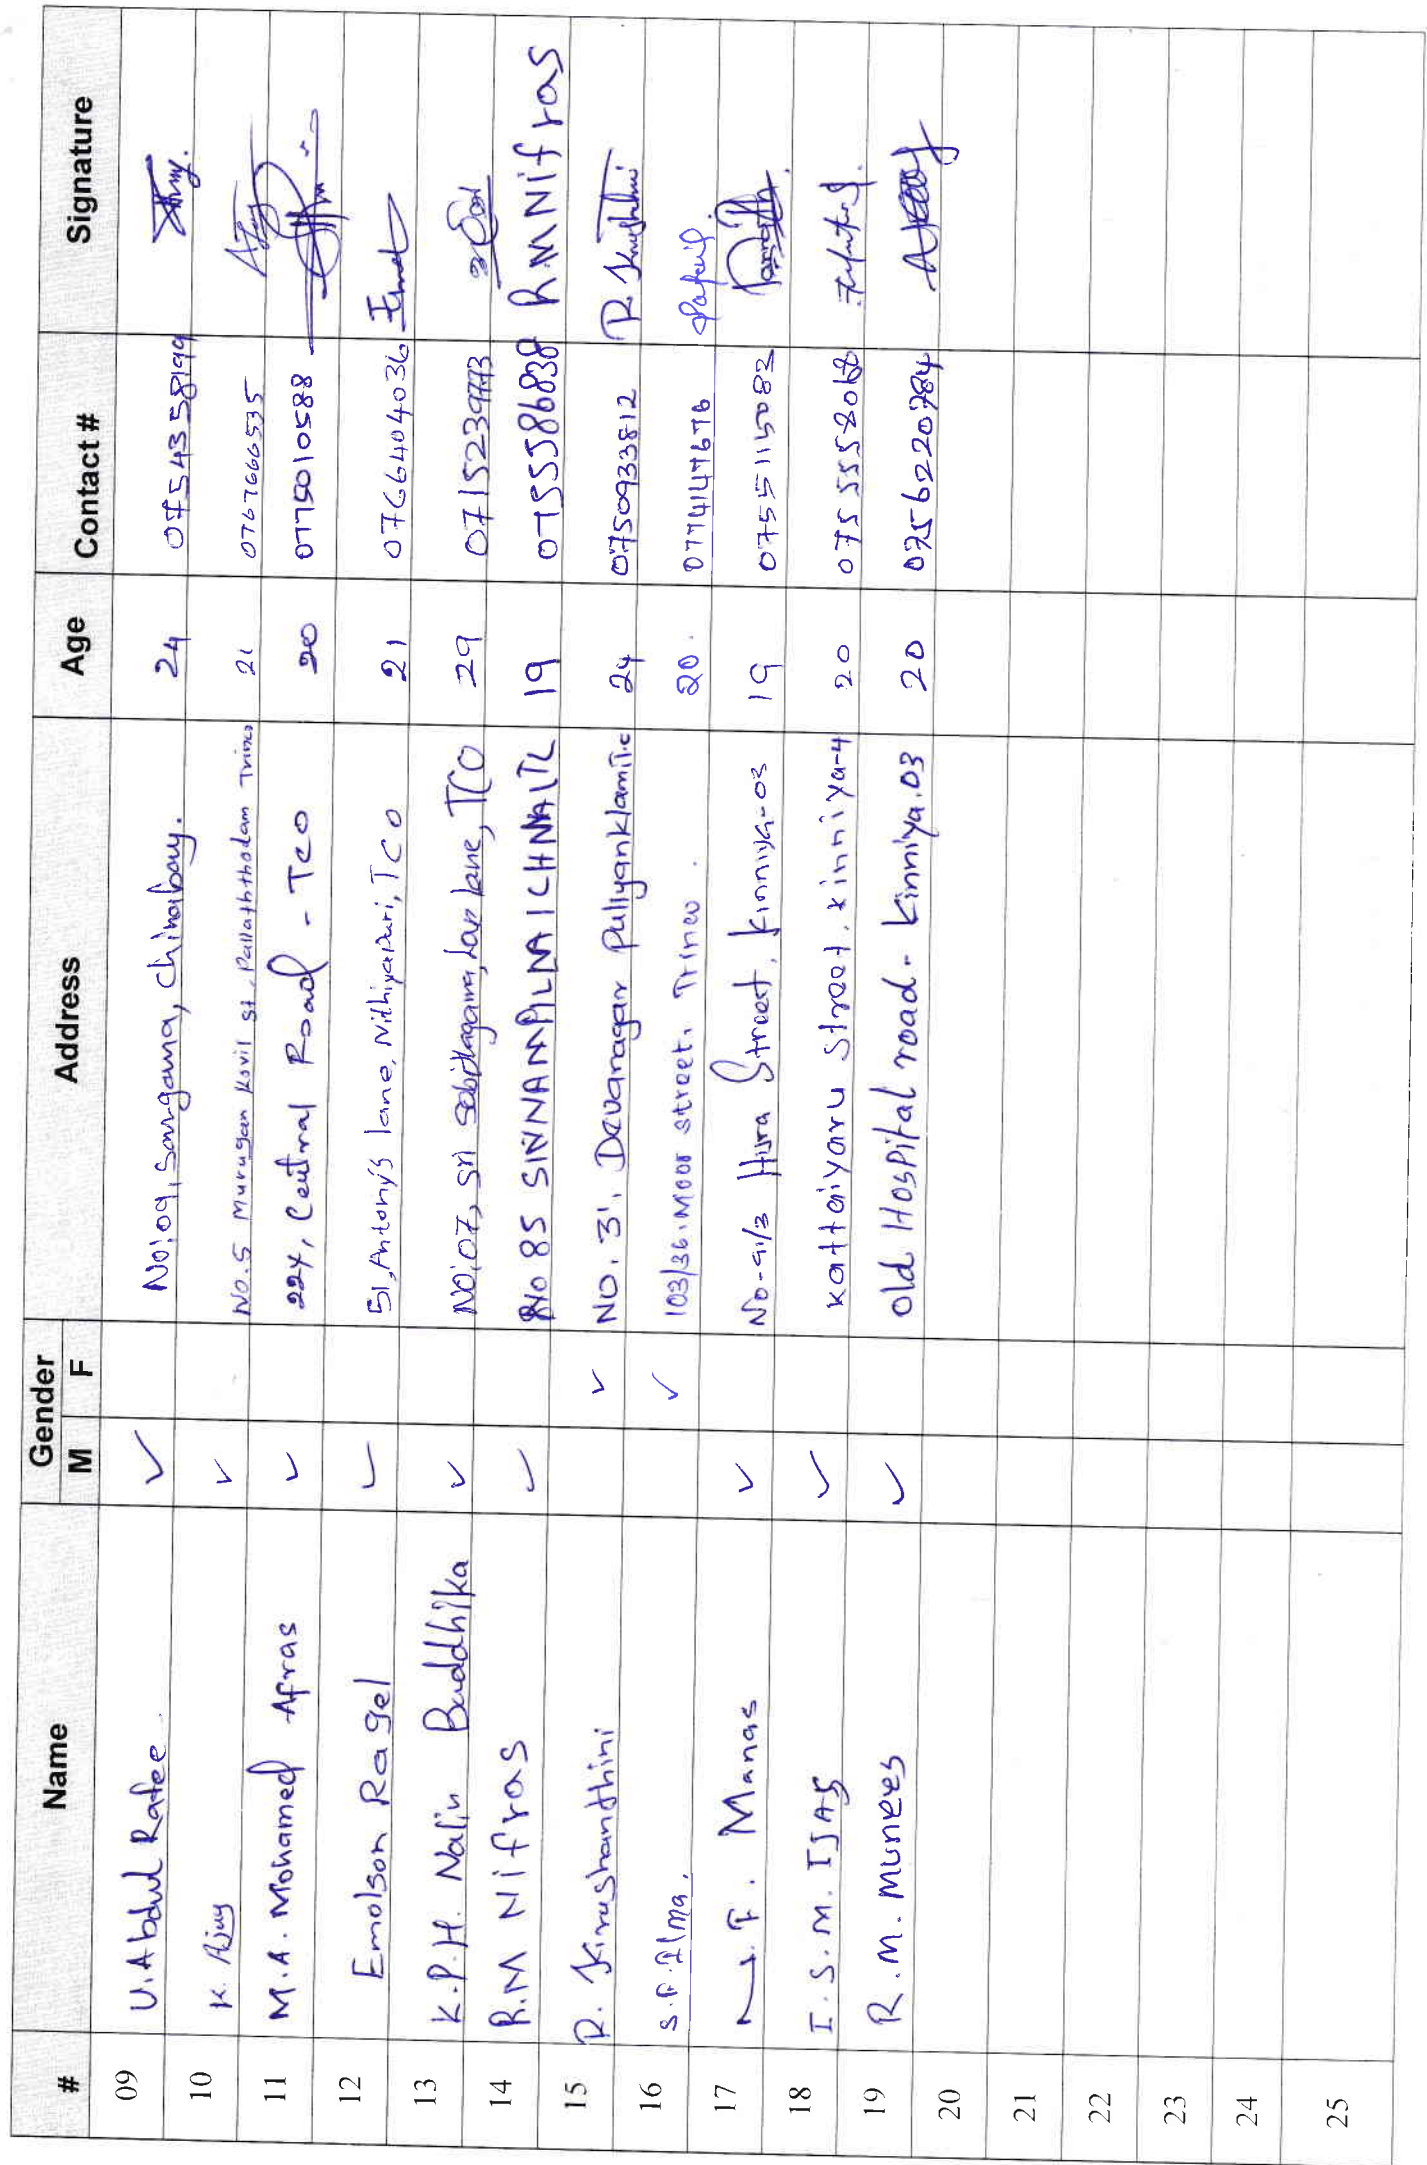 # Name Gender Address Age Contact # Signature
M F
09 U. Abdul Rafee ✓ No: 09, Sangama, Chinabay. 24 0754358199
10 K. Ajay ✓ No. 5 Murugan Kovil st, Pallaththodam Trinco 21 0767666535 AJay
11 M.A. Mohamed Afras ✓ 224, Central Road - Tco 20 0775010588
12 Emolson Ragel ✓ 51, Antony's lane, Nithiyapuri, TCO 21 0766404036
13 K.P.H. Nalin Buddhika ✓ NO: 07, Sri lane, TCO 29
14 R.M Nifras ✓ No 85 19 0755586838 RMNifras
15 R. Kirushanthini ✓ NO. 31, Devanagar Puliyanklam T.c 24 0750933812 R. Kirushthini
16 S.F. Ilma, ✓ 103/36, Moor street, Trinco. 20. 0774147676
17 N.F. Manas ✓ No-91/3 Hijra Street, Kinniya-03 19 0755115082
18 I.S.M. IJAS ✓ Kattaiyaru Street, Kinniya-4 20
19 R.M. Munees ✓ Old Hospital road - Kinniya.03 20 0756220784
20
21
22
23
24
25